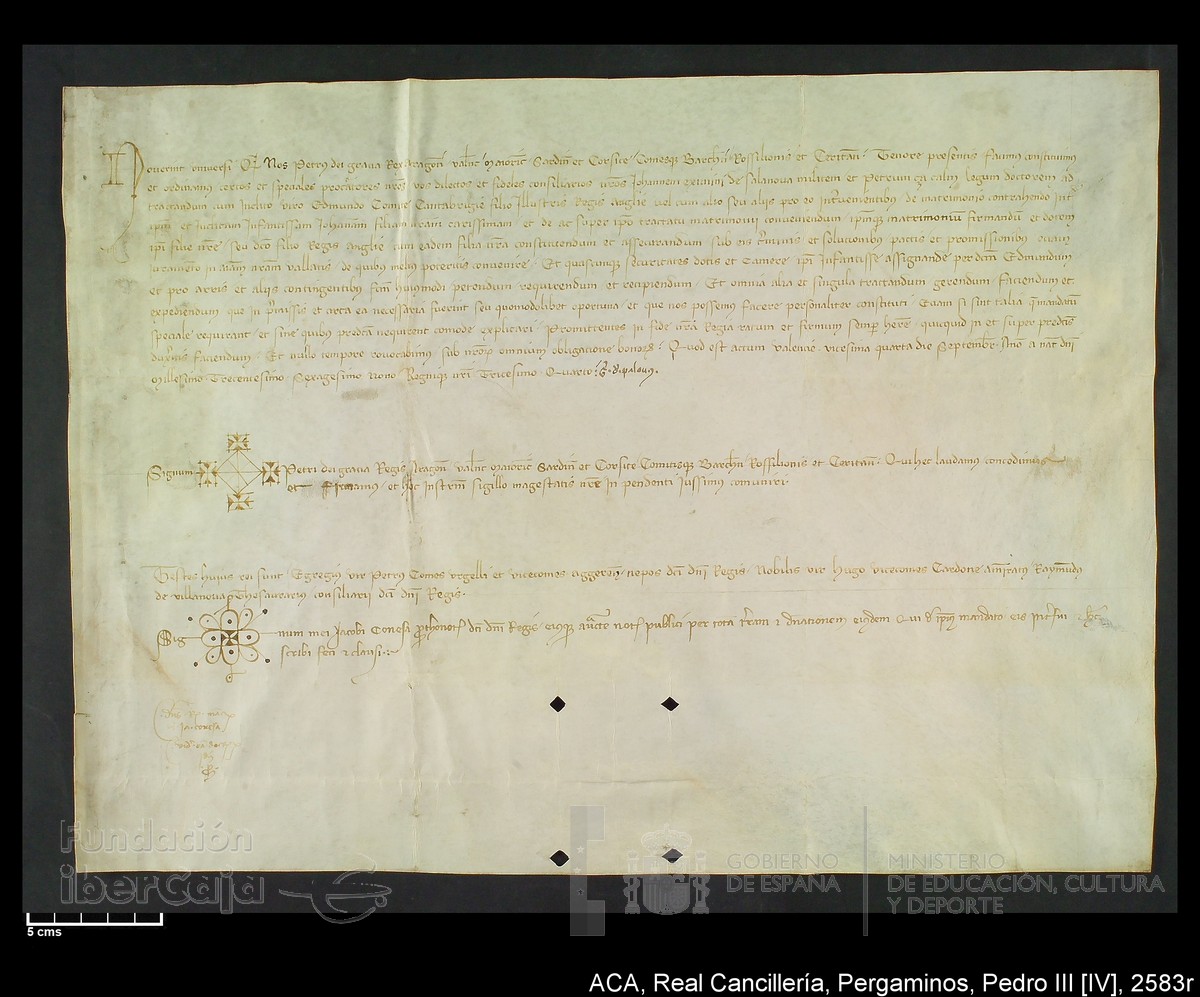 Noverint universi Q Nos Petrus dei gracia Rex Aragon Valenc Maioric Sardin et Corsice Comesq Barchn Rossilionis et Ceritan Tenore presentis facimus constituimus
et ordinamus certos et speciales procuratores nros vos dilectos et fideles consiliarios nros Johannem de Salanova militem et Petrum calm legum doctorem ad
tractandum cum Inclito viro Edmundo Comite Cantabrigie filio Illustris Regis Anglie vel cum alio seu aliis pro eo intervenientibus de matrimonio contrahendo int
ipm et inclitam Infantissam Johannam filiam nram carissimam et de ac super ipo tractatu matrimonii conveniendum ipmq matrimonium firmandum et dotem
ipi filie nre seu dco filio Regis Anglie cum eadem filia nra constituendum et assecurandum sub eis et solucionibus pactis et promissionibus eciam
iuramento in aiam nram vallatis de quibus melius poteritis convenire Et quascunq securitates dotis et Camere ipi Infantisse assignande per dcm Edmundum
et pro arris et aliis contingentibus huiusmodi petendum requirendum et recipiendum Et omnia alia et singula tractandum gerendum faciendum et
expediendum que in pmissis et circa ea necessaria fuerint seu quomodolibet oportuna et que nos possemus facere personaliter constituti Eciam si sint talia q mandatum
speciale requirant et sine quibus predca nequirent comode explicari Promittentes in fide nra Regia ratum et firmum semp here quicquid in et super predcis
duxeritis faciendum Et nullo tempore revocabimus sub nrorum omnium obligatione bonor Quod est actum Valencie vicesima quarta die Septembr Anno a nat dni
Millesimo Trecentesimo Sexagesimo Nono Regniq nri Tricesimo Quarto
Signum Petri dei gracia Regis Aragon Valenc Maioric Sardin et Corsice Comitisq Barchn Rossilionis et Ceritan Qui hec laudamus concedimus
et Firmamus et hoc Instrm sigillo magestatis nre In pendenti Iussimus comuniri
Testes huius rei sunt Egregius vir Petrus Comes Urgelli et vicecomes Aggeren nepos dci dni Regis Nobilis vir Hugo vicecomes Cardone Raymundus
de Villanova Thesaurarius consiliarii dci dni Regis
Sig num mei Jacobi Conesa prothonot dci dni Regis eiusq aucte not publici per tota terram et dnationem eiusdem Qui de ipius mandato eis interfui
scribi feci et clausi
Fundación
iberCaja
GOBIERNO
DE ESPAÑA
MINISTERIO
DE EDUCACIÓN, CULTURA
Y DEPORTE
5 cms
ACA, Real Cancillería, Pergaminos, Pedro III [IV], 2583r